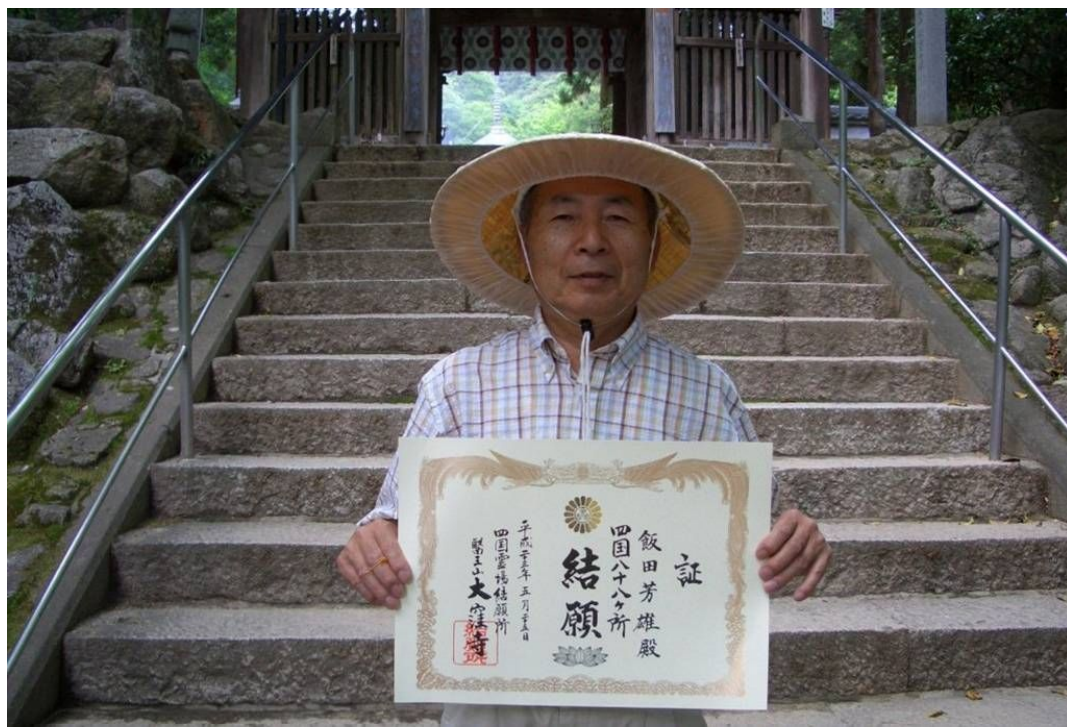 証
飯田芳雄殿
四国八十八ヶ所
結願
平成二十三年五月二十五日
四国霊場結願所
醫王山大窪寺